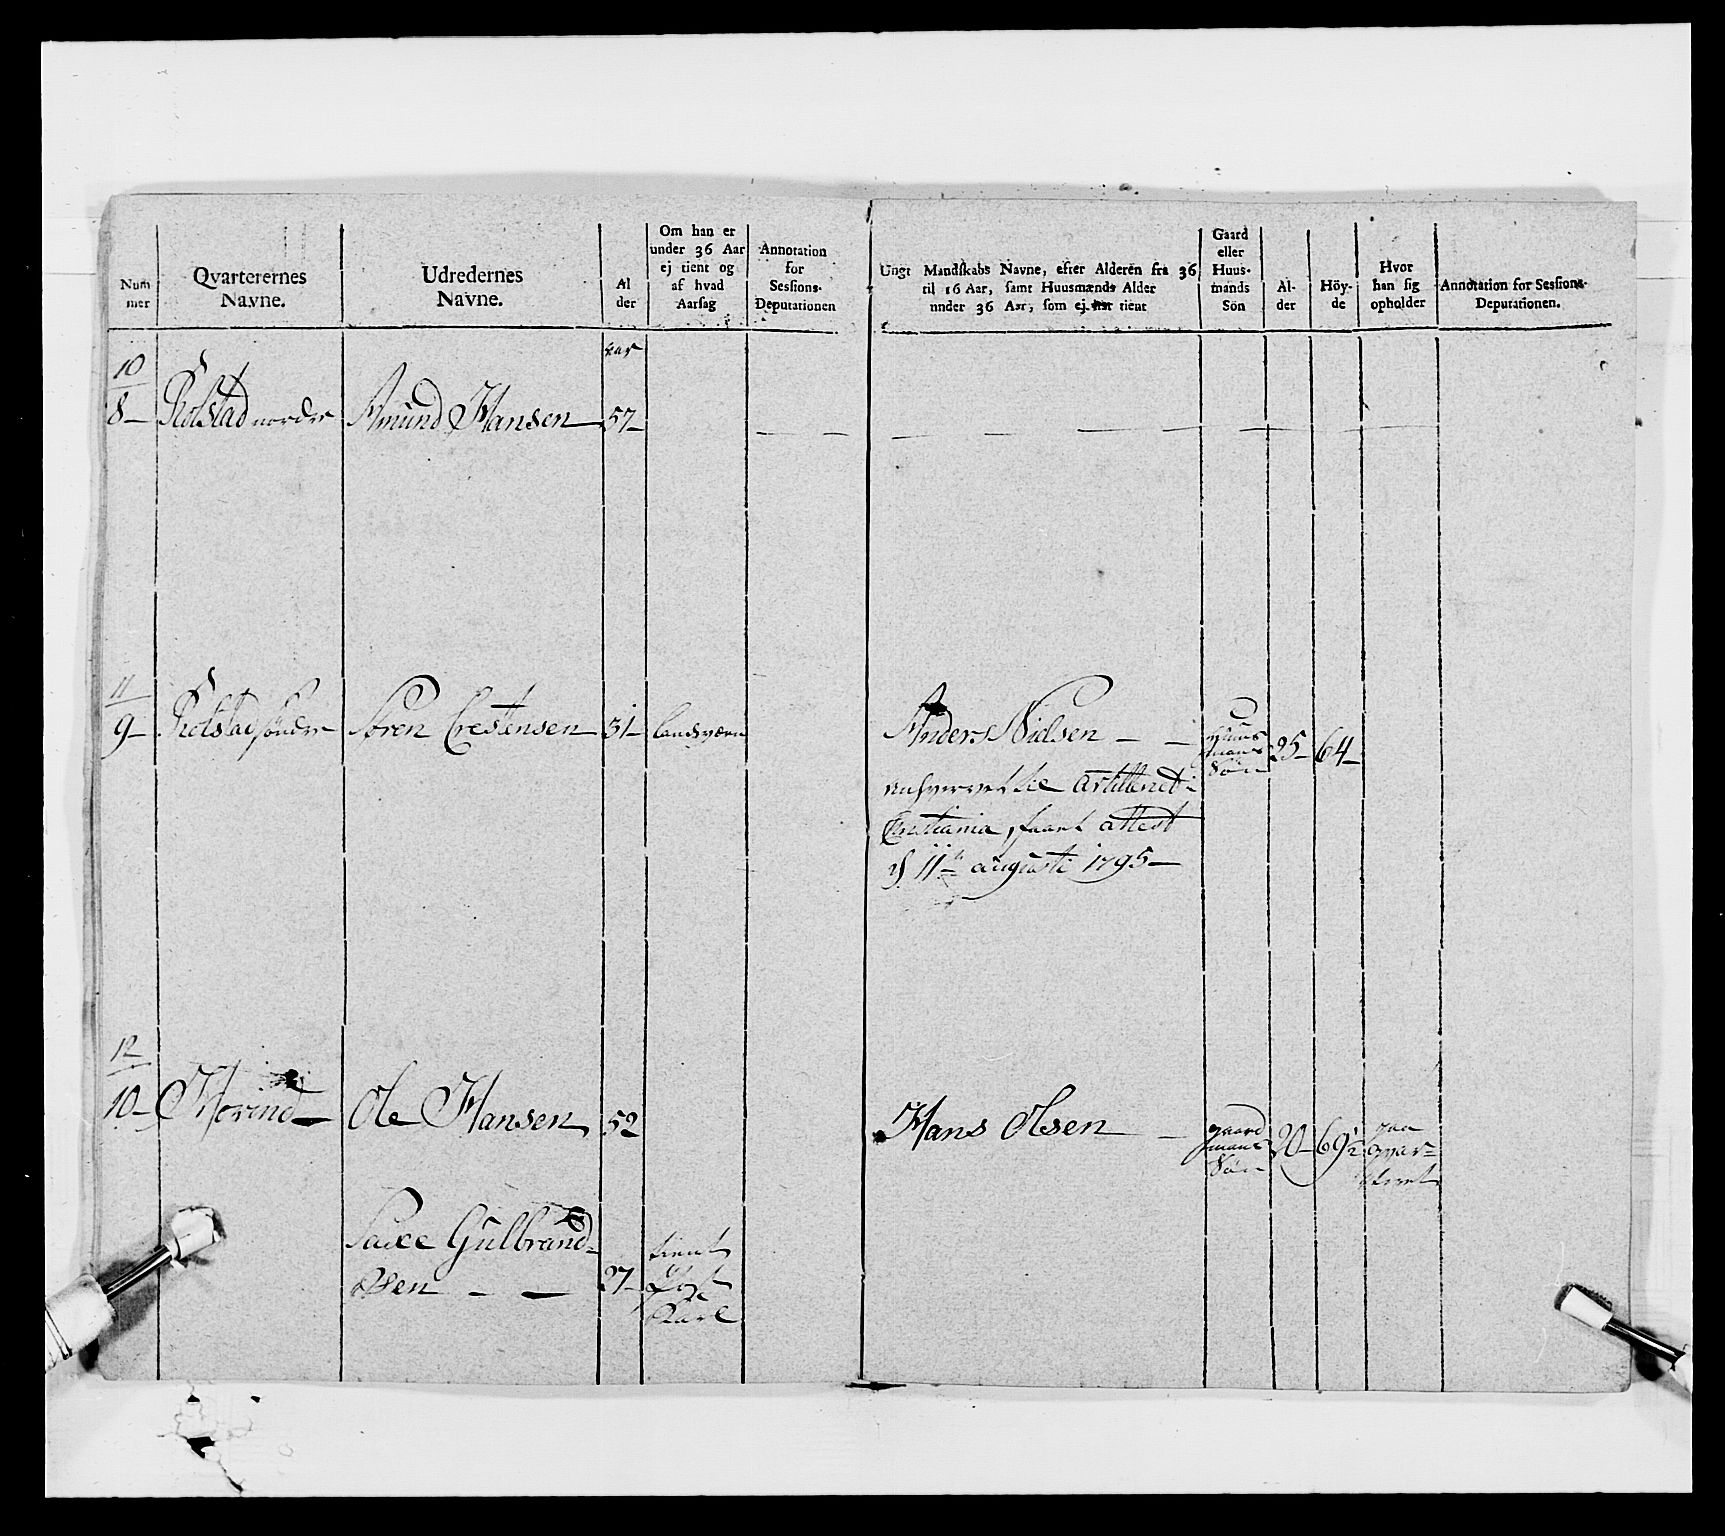 Num
mer
Qvarterernes
Navne.
Udredernes
Navne.
Al
der
Om han er
under 36 Aar
ej tient og
af hvad
Aarsag
Annotation
for
Sessions-
Deputationen
Ungt Mandskabs Navne, efter Alderen fra 36
til 16 Aar, samt Huusmænds Alder
under 36 Aar, som ej har tient
Gaard
eller
Huus-
mands
Sön
Al-
der
Höy-
de
Hvor
han sig
opholder
Annotation for Sessions-
Deputationen.
aar
10
8 – Rolstad nordre Amund Hansen 57 –
11
9 – Rolstad søndre Søren Crestensen 31 – Landværn
Anders Nielsen – – Huus
mans
Søn 25 – 64 –
til Artilleriet i
Cristiania, faaet attest
d. 11te augusti 1795 –
12
10 – Horind – Ole Hansen 52
Hans Olsen – gaard
mans
Søn 20 – 69½ paa
qvar=
teret
Saxe Gulbrand-
sen – – 27 – tient
Post
Karl